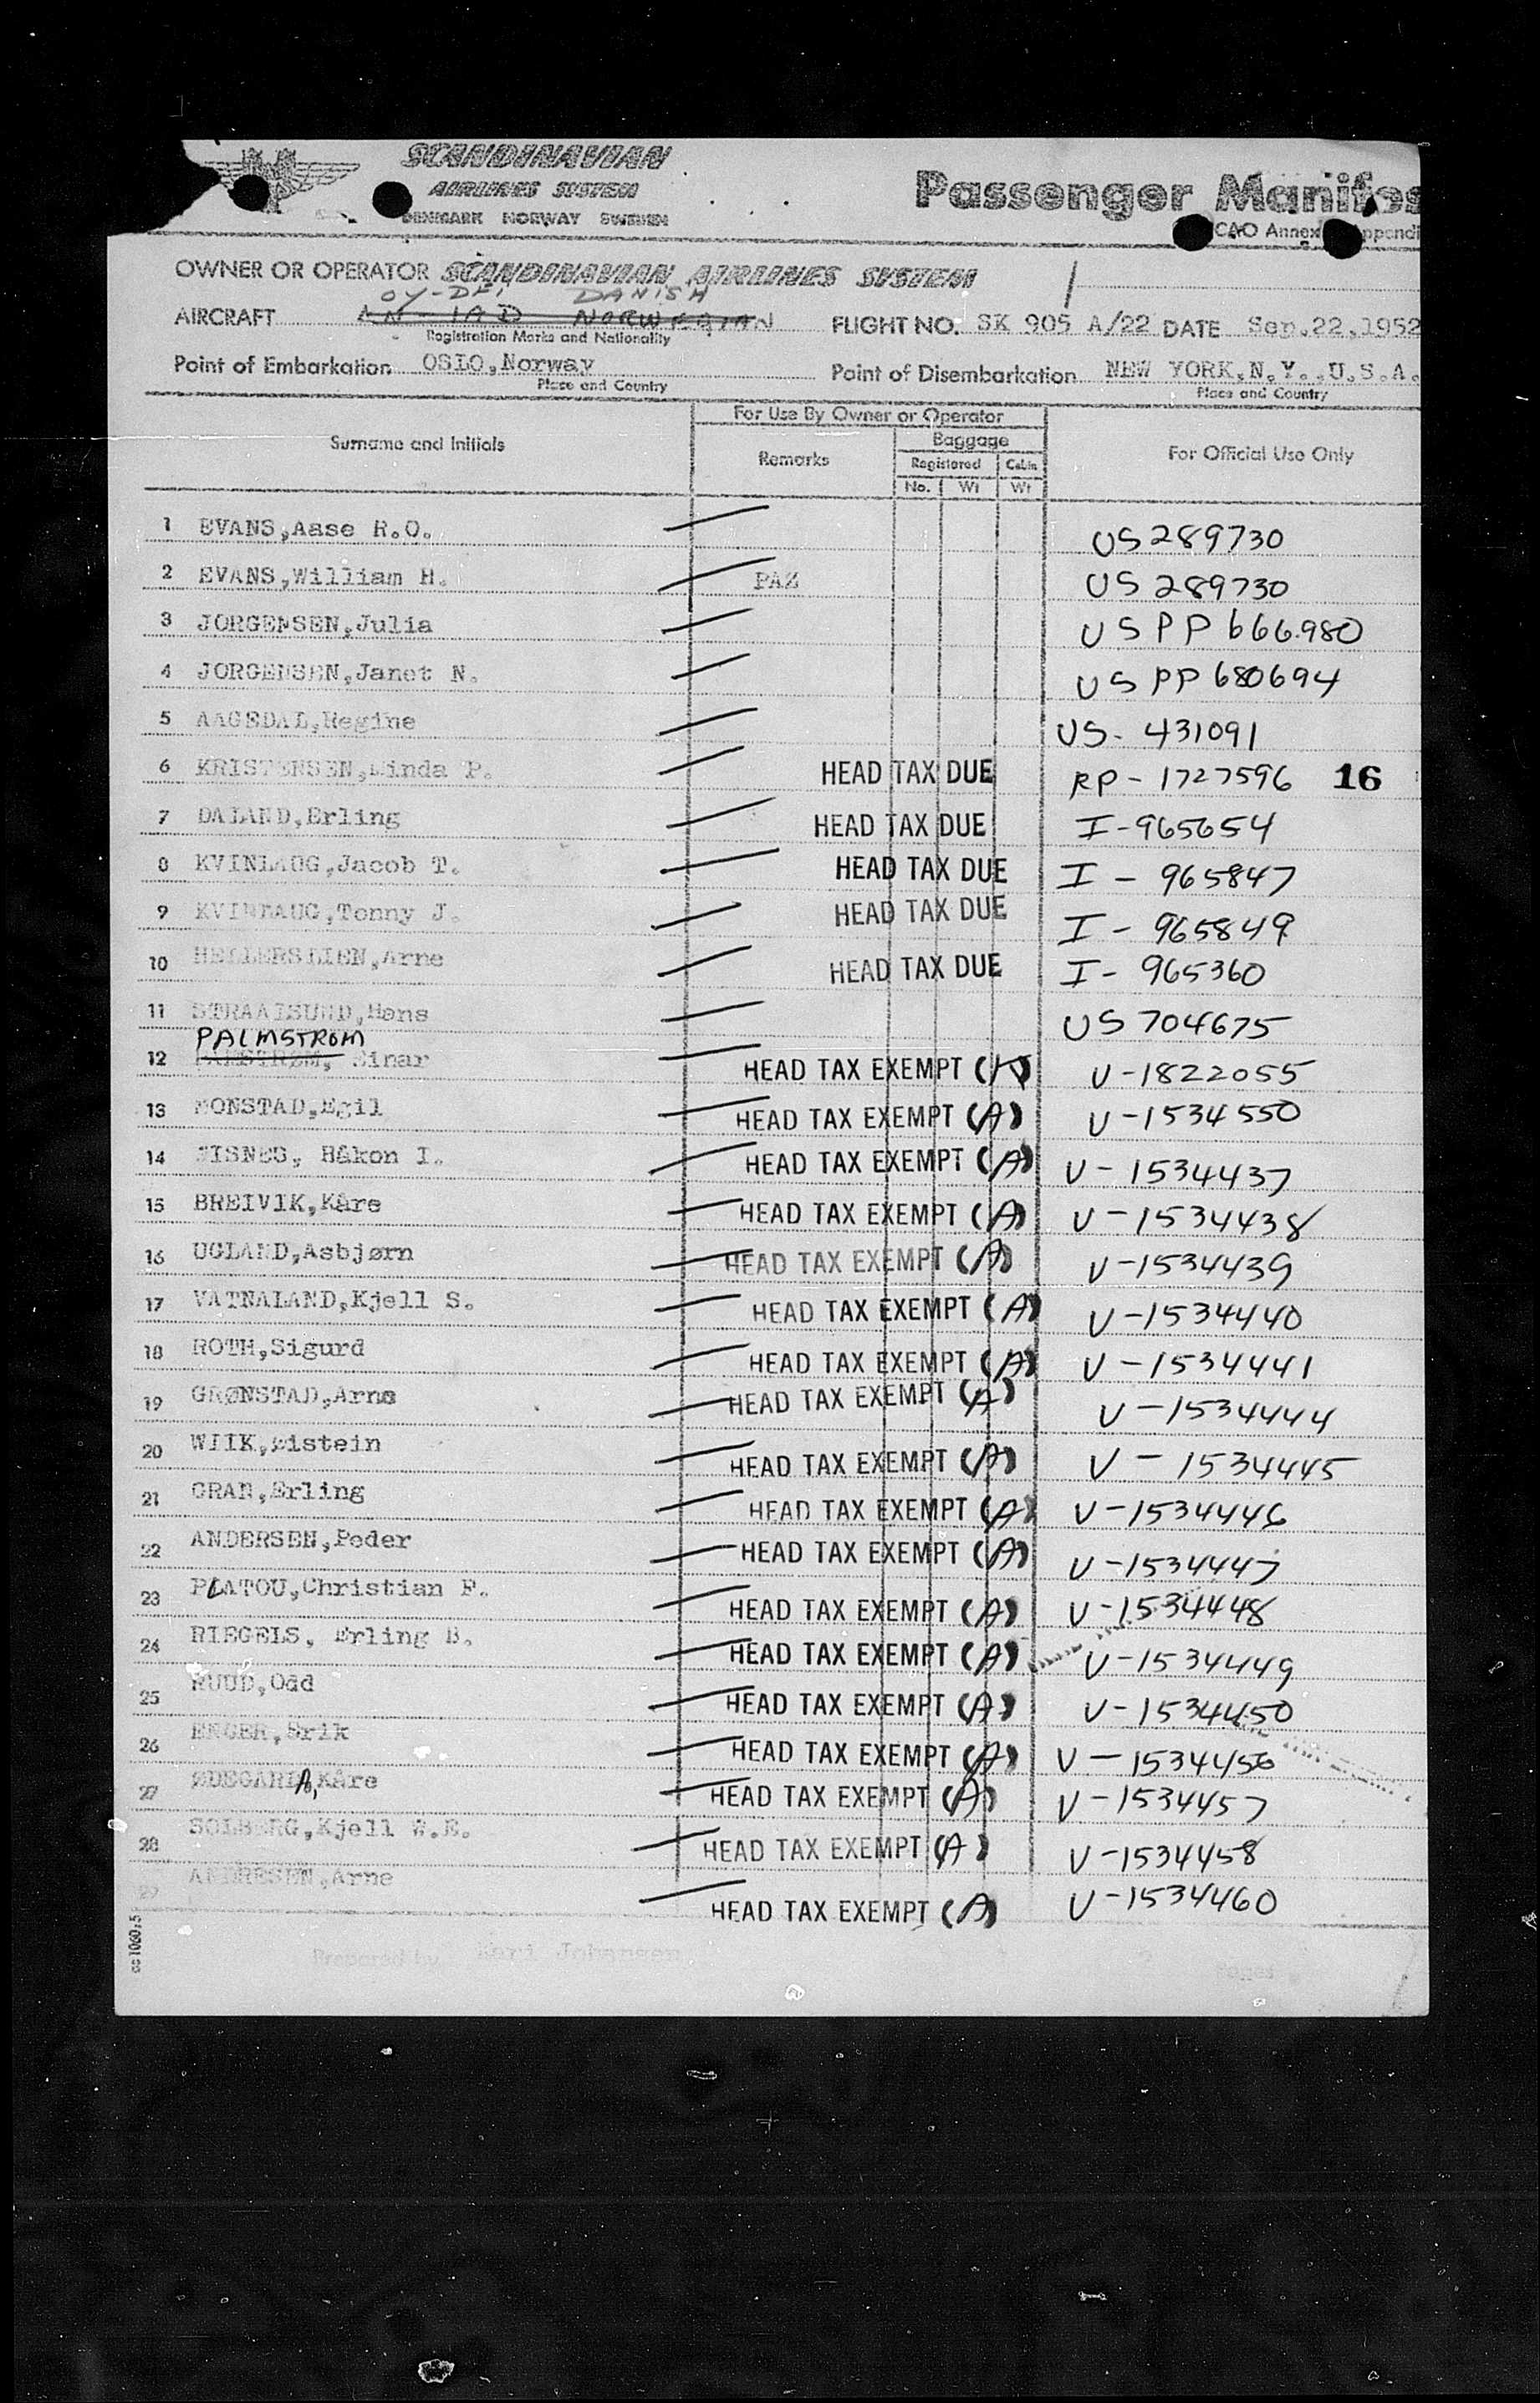 SCANDINAVIAN
AIRLINES SYSTEM
DENMARK NORWAY SWEDEN
Passenger Manifes
CAO Annex ppendi
OWNER OR OPERATOR SCANDINAVIAN AIRLINES SYSTEM
OY-DFI DANISH
AIRCRAFT LN-IAD NORWEGIAN FLIGHT NO. SK 905 A/22 DATE Sep.22,1952
Registration Marks and Nationality
Point of Embarkation OSLO,Norway Point of Disembarkation NEW YORK,N.Y.,U.S.A.
Place and Country Place and Country
For Use By Owner or Operator
Surname and Initials Remarks Baggage For Official Use Only
Registered Cabin
No. Wt Wt
1 EVANS,Aase R.O. US289730
2 EVANS,William H. PAZ US 289730
3 JORGENSEN,Julia US PP 666980
4 JORGENSEN,Janet N. US PP 680694
5 AAGEDAL,Regine US- 431091
6 KRISTENSEN,Linda P. HEAD TAX DUE RP-1727596 16
7 DALAND,Erling HEAD TAX DUE I-965654
8 KVINLAUG,Jacob T. HEAD TAX DUE I - 965847
9 KVINLAUG,Tonny J. HEAD TAX DUE I - 965849
10 HELLERSLIEN,Arne HEAD TAX DUE I- 965360
11 STRAALSUND,Hans US 704675
PALMSTROM
12 Einar HEAD TAX EXEMPT V-1822055
13 MONSTAD,Egil HEAD TAX EXEMPT (A) V-1534550
14 Håkon I. HEAD TAX EXEMPT (A) V-1534437
15 BREIVIK,Kåre HEAD TAX EXEMPT (A) V-1534438
16 UGLAND,Asbjørn HEAD TAX EXEMPT (A) V-1534439
17 VATNALAND,Kjell S. HEAD TAX EXEMPT (A) V-1534440
18 ROTH,Sigurd HEAD TAX EXEMPT (A) V-1534441
19 GRØNSTAD,Arne HEAD TAX EXEMPT (A) V-1534444
20 WIIK,Øistein HEAD TAX EXEMPT (A) V-1534445
21 GRAN,Erling HEAD TAX EXEMPT (A) V-1534446
22 ANDERSEN,Peder HEAD TAX EXEMPT (A) V-1534447
23 PLATOU,Christian F. HEAD TAX EXEMPT (A) V-1534448
24 RIEGELS, Erling B. HEAD TAX EXEMPT (A) V-1534449
25 RUUD,Odd HEAD TAX EXEMPT (A) V-1534450
26 ENGER,Erik HEAD TAX EXEMPT (A) V-1534456
27 ØDEGARDA,Kåre HEAD TAX EXEMPT (A) V-1534457
28 SOLBERG,Kjell W.E. HEAD TAX EXEMPT (A) V-1534458
29 ANDRESEN,Arne HEAD TAX EXEMPT (A) V-1534460
Prepared by Kari Johansen Pages
cs 1060:5